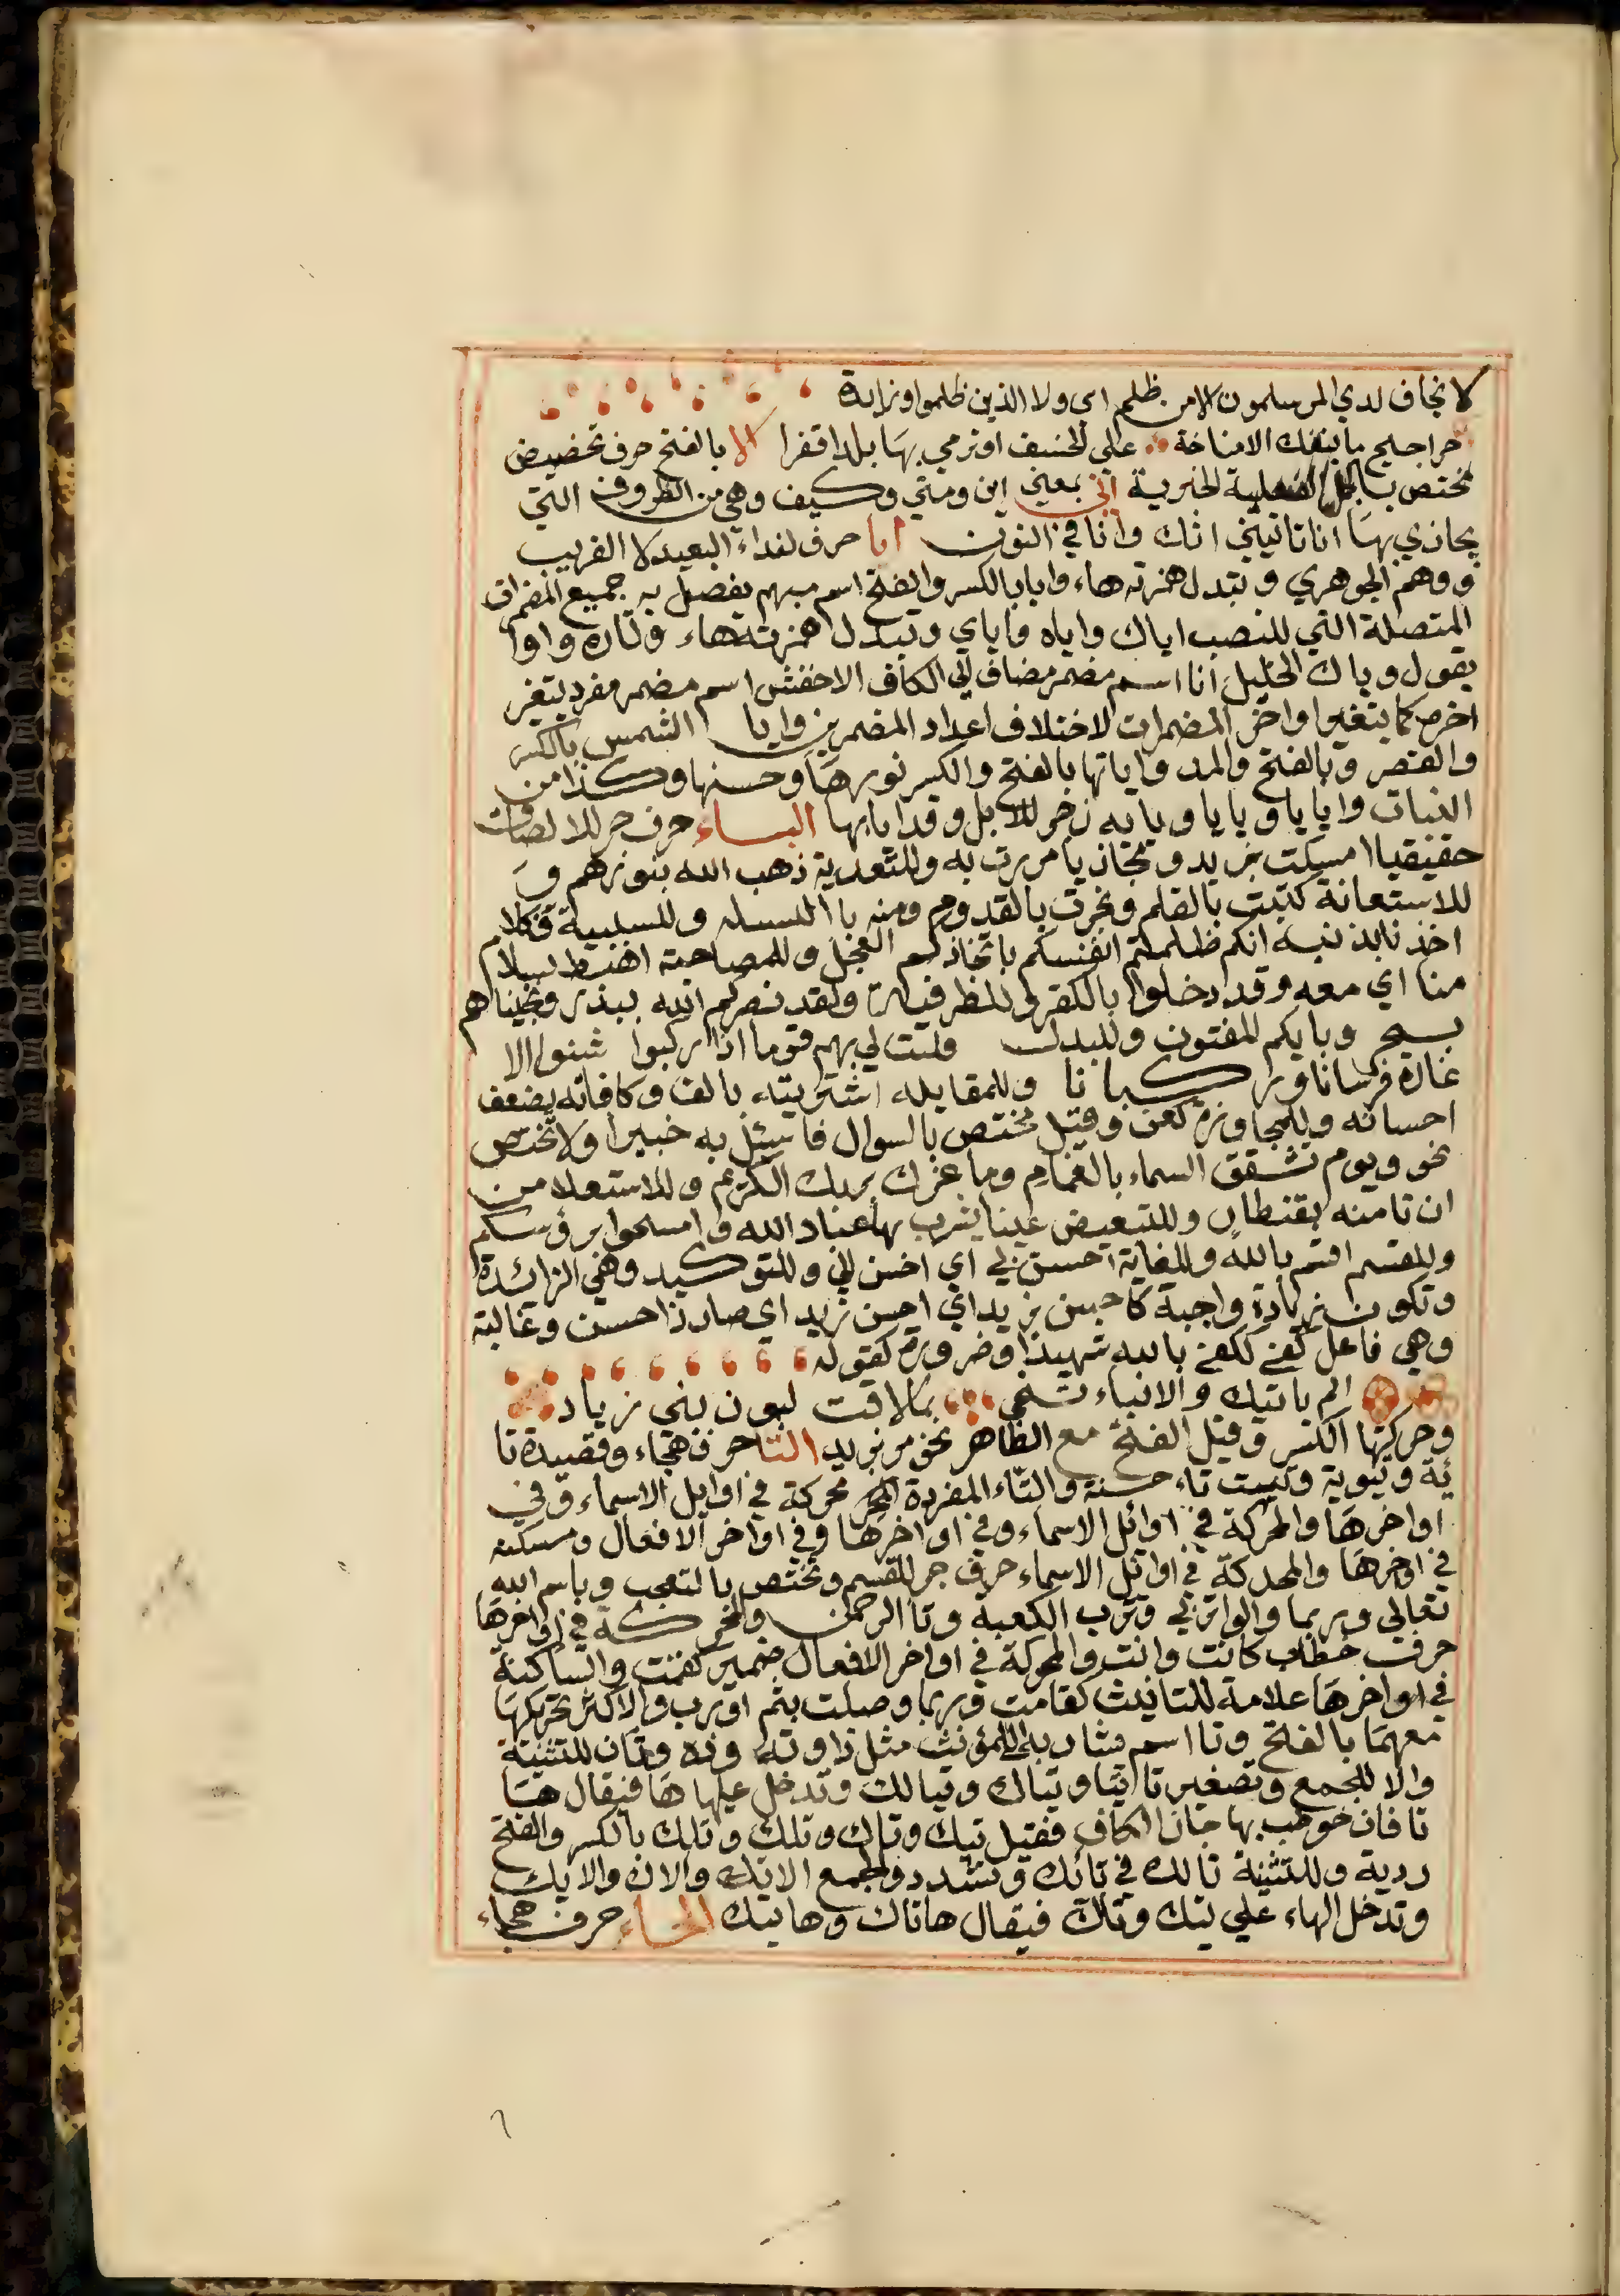 لا يخاف لدي المرسلمون الا من ظلم اي ولا الذين ظلموا وزايدة
حراجيح ما ينفك الا مناخة علي الخسف او نرمي بها بلدا قفرا الا بالفتح حرف تحضيض
مختص بالجمل الفعلية الخبرية اني بمعني اين ومتي وكيف وهي من الظروف التي
يجازي بها انا تانيني اتك وانا في النون ايا حرف لنداء البعيد لا القريب
ووهم الجوهري وتبدل همزته هاء وايا بالكسر والفتح اسم مبهم يفصل به جميع المضمرات
المتصلة التي للنصب اياك واياه واياي وتبدل همزته هاء وتارة واوا
يقول وياك الخليل انا اسم مضمر مضاف الي الكاف الاخفش اسم مضمر مفرد يتغير
اخره كما يتغير اواخر المضمرات لاختلاف اعداد المضمرين وايا الشمس بالكسر
والقصر وبالفتح والمد واياتها بالفتح والكسر نورها وحسنها وكذا من
النبات وايايا ويايا ويايه زجر للابل وقد ايابها الباء حرف جر للالصاق
حقيقيا امسكت بزيد ومجازيا مررت به وللتعدية ذهب الله بنورهم و
للاستعانة كتبت بالقلم ونجرت بالقدوم ومنه با البسمله وللسببية فكلا
اخذنا بذنبه انكم ظلمتم انفسكم باتخاذكم العجل وللمصاحبة اهبط بسلام
منا اي معه وقد دخلوا بالكفر وللظرفية ولقد نصركم الله ببدر ونجيناهم
بسحر وبايكم المفتون وللبدل فليت لي بهم قوما اذا ركبوا شنوا الا
غارة فرسانا وركبانا وللمقابله اشتريته بالف وكافاته بضعف
احسانه وللمجاوزة كعن وقيل مختص بالسوال فاسئل به خبيرا ولا تختص
نحو ويوم تشقق السماء بالغمام وما غرك بربك الكريم وللاستعلا من
ان تامنه بقنطار وللتبعيض عينا يشرب بها عباد الله وامسحوا برؤسكم
وللقسم اقسم بالله وللغاية احسن بي اي احسن الي وللتوكيد وهي الزائدة
وتكون زيادة واجبة كاحسن بزيد اي احسن زيد اي صار ذا حسن وغالبة
وهي فاعل كفي ككفي بالله شهيدا وضرورة كقوله
الم ياتيك والانباء تنمي بما لاقت لبون بني زياد
وحركتها الكسر وقيل الفتح مع الظاهر نحو مر بزيد التا حرف هجاء وقصيدة تا
ئية وتيوية وتييت تاء حسنة والتاء المفردة محركة في اوايل الاسماء وفي
اواخرها والمحركة في اوائل الاسماء وفي اواخرها وفي اواخر الافعال ومسكنه
في اوخرها والمحركة في اوائل الاسماء حرف جر للقسم وتختص بالتعجب وباسم الله
تعالي وربما والوا تربي وترب الكعبة وتا الرحمن والمحركة في اواخرها
حرف خطاب كانت وانت والمحركة في اواخر الافعال ضمير كقمت والساكنة
في اواخرها علامة للتانيث كقامت وربما وصلت بثم او رب والاكثر تحريكها
معهما بالفتح وتا اسم مشار به الي المؤنث مثل ذا وته وذه وتان للتثنية
والا للجمع وتصغير تا تيا وتياك وتيالك وتدخل عليها ها فيقال ها
تا فان خوطب بها جاز الكاف فقيل تيك وتاك وتلك وتلك بالكسر والفتح
ردية وللتثنية تالك في تانك وتشدد والجمع الائك والاك والايك
وتدخل الهاء علي تيك وتاك فيقال هاتاك وهاتيك الحاء حرف هجاء